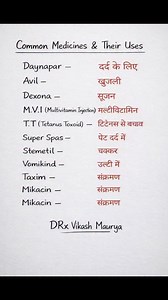 Common Medicines & Their Uses
Daynapar — दर्द के लिए
Avil — खुजली
Dexona — सूजन
M.V.I (Multivitamin Injection) मल्टीविटामिन
T.T (Tetanus Toxoid) — टिटेनस से बचाव
Super Spas — पेट दर्द में
Stemetil — चक्कर
Vomikind — उल्टी में
Taxim — संक्रमण
Mikacin — संक्रमण
Mikacin — संक्रमण
DRx Vikash Maurya